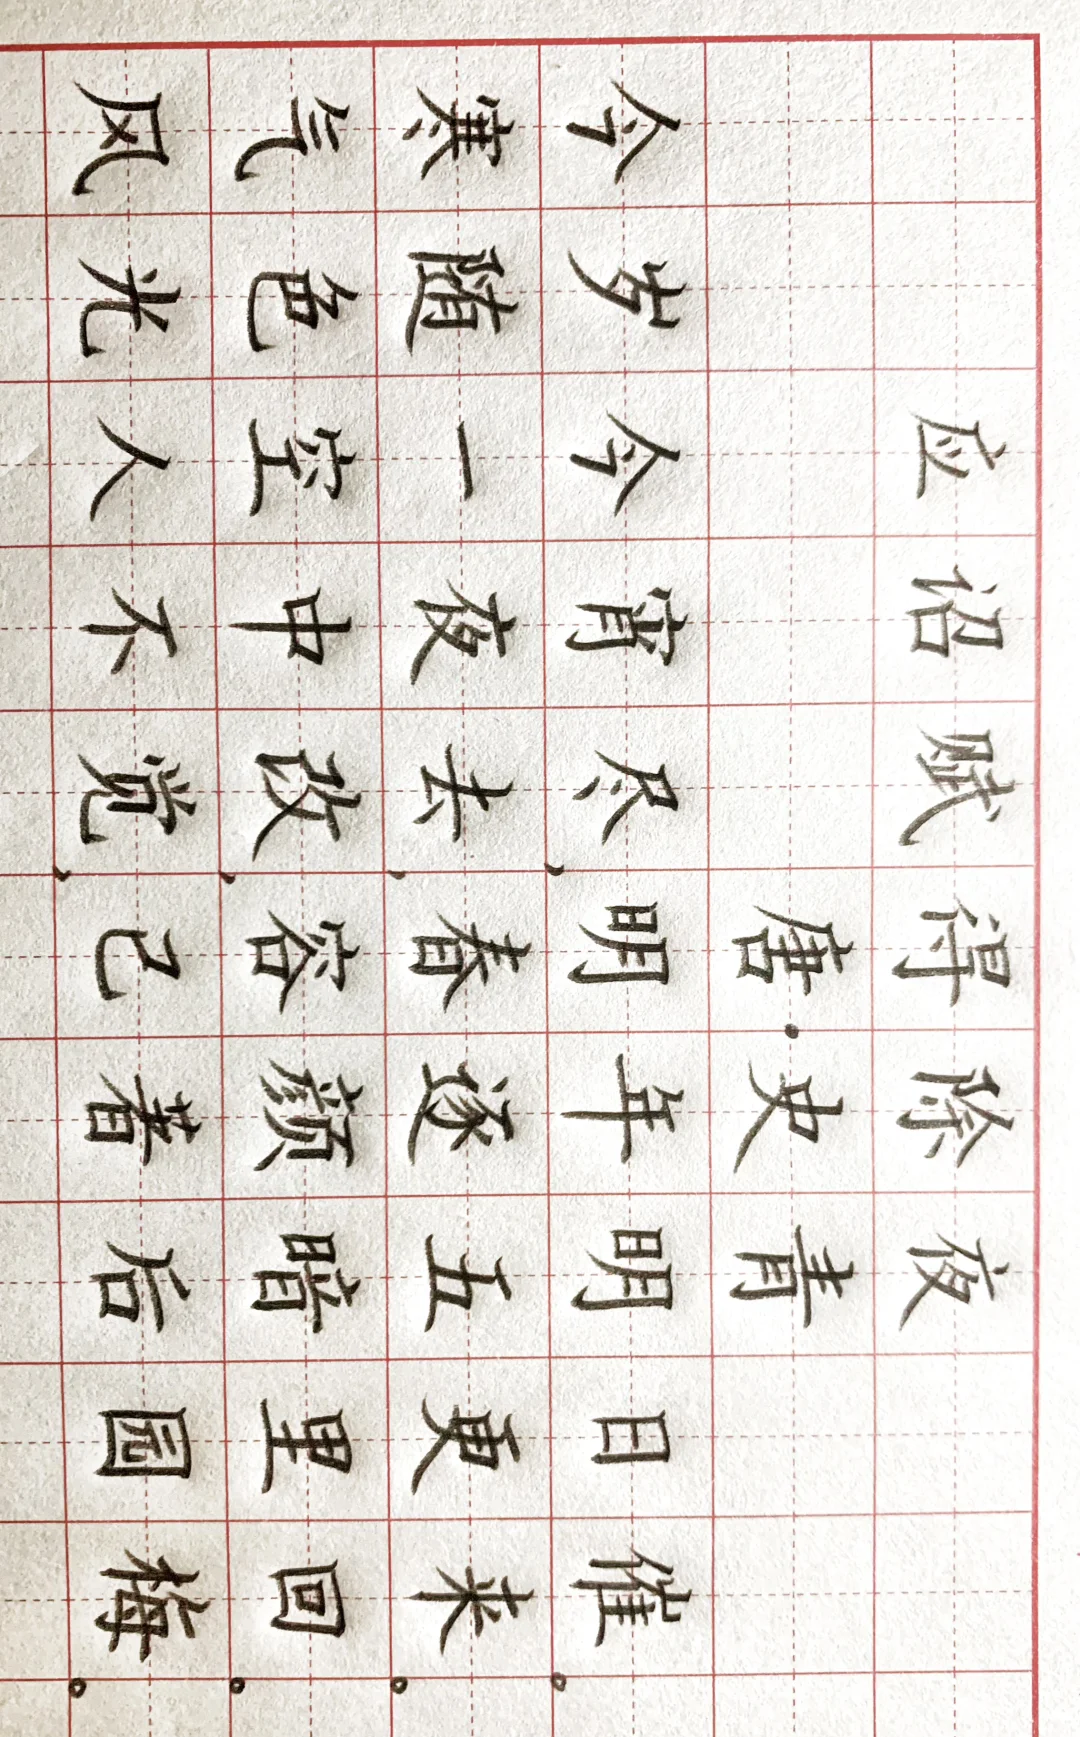 应诏赋得除夜
唐·史青
今岁今宵尽,明年明日催。
寒随一夜去,春逐五更来。
气色空中改,容颜暗里回。
风光人不觉,已著后园梅。